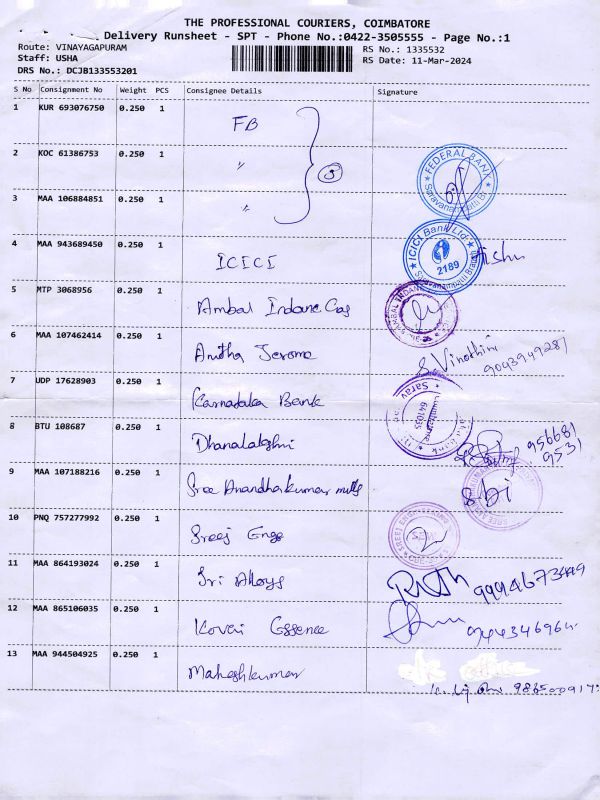 THE PROFESSIONAL COURIERS, COIMBATORE
Delivery Runsheet - SPT - Phone No.:0422-3505555 - Page No.:1
Route: VINAYAGAPURAM
RS No.: 1335532
Staff: USHA
RS Date: 11-Mar-2024
DRS No.: DCJB133553201
S No Consignment No Weight PCS Consignee Details Signature
1 KUR 693076750 0.250 1 FB
2 KOC 61386753 0.250 1 "
3 MAA 106884851 0.250 1 "
FEDERAL BANK
Saravanampatti Br
4 MAA 943689450 0.250 1 ICICI
ICICI Bank Ltd
2189
5 MTP 3068956 0.250 1 Ambal Indane Gas
6 MAA 107462414 0.250 1 Anitha Jerome S. Vinothini
9043949281
7 UDP 17628903 0.250 1 Karnataka Bank
8 BTU 108687 0.250 1 Dhanalakshmi
956681
9531
9 MAA 107188216 0.250 1 Sree Anandhakumar mills
10 PNQ 757277992 0.250 1 Sreej Engg
11 MAA 864193024 0.250 1 Sri Alloys
12 MAA 865106035 0.250 1 Kovai Essence
13 MAA 944504925 0.250 1 Maheshkumar